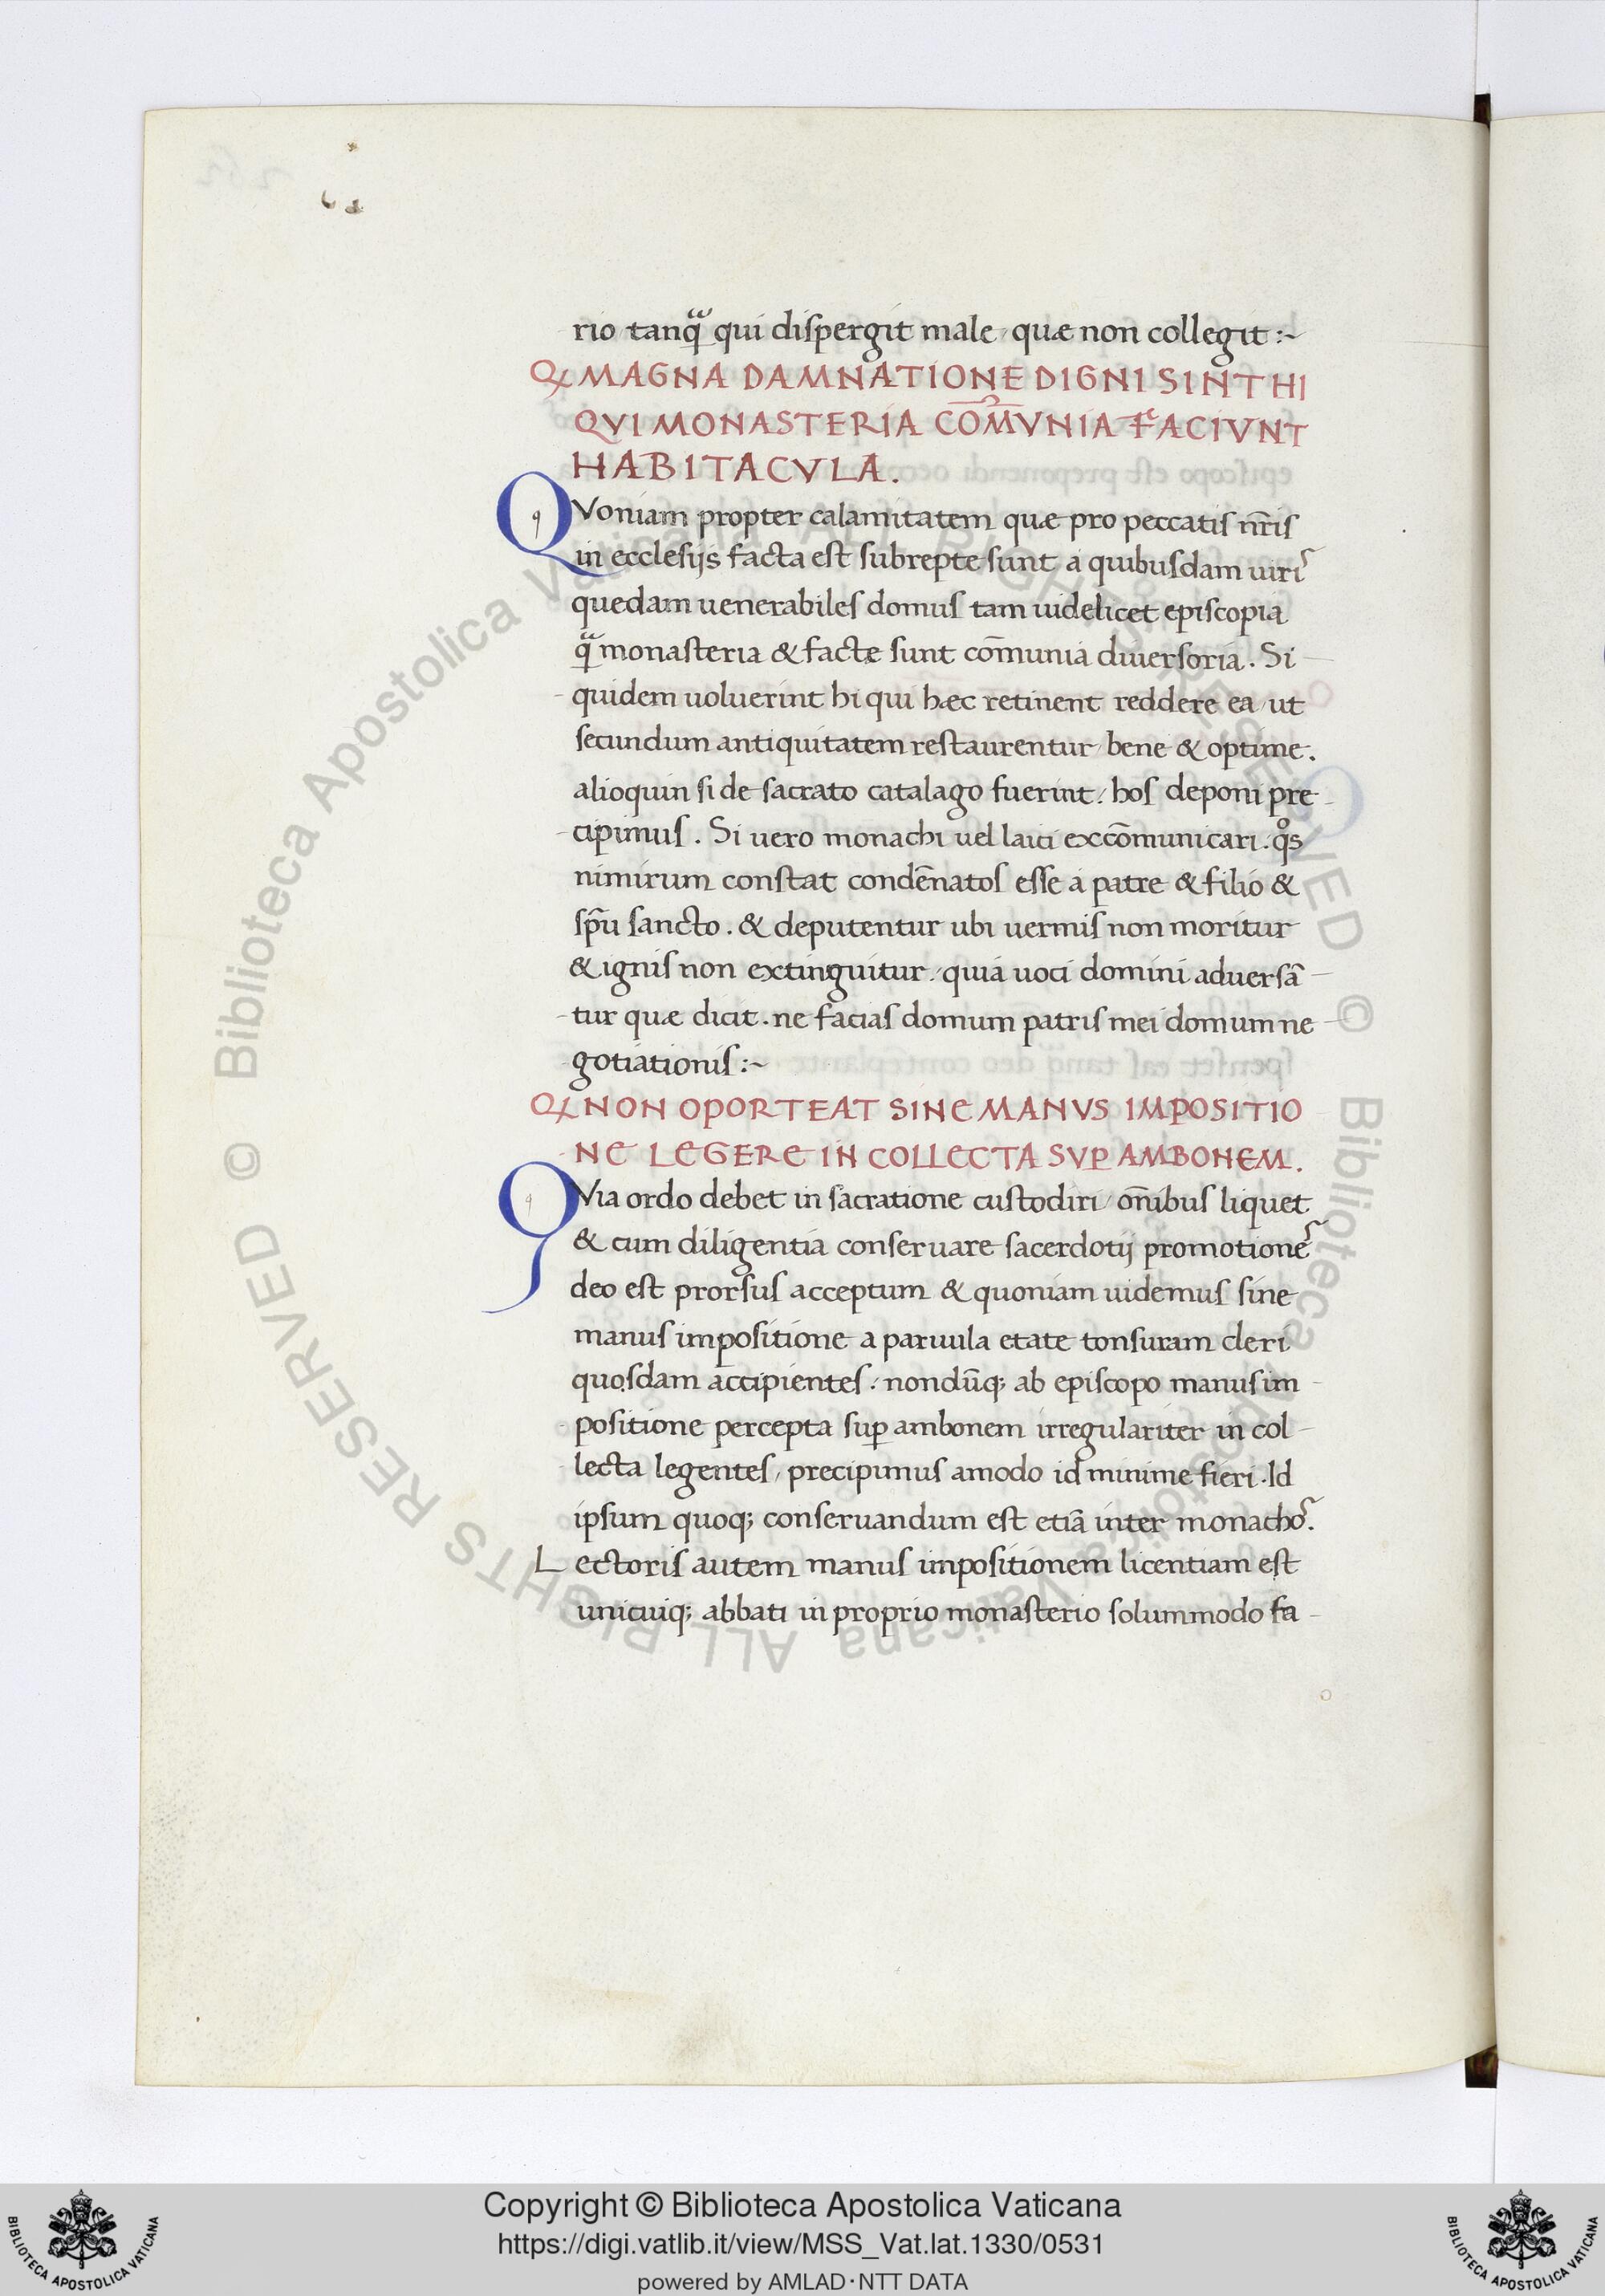 rio tanq̃ qui dispergit male, quæ non collegit :~
Qꝫ MAGNA DAMNATIONE DIGNI SINT HI
QVI MONASTERIA COM̄VNIA FACIVNT
HABITACVLA.
QVoniam propter calamitatem quæ pro peccatis nr̄is
in ecclesijs facta est subrepte sunt a quibusdam uiris
quedam uenerabiles domus tam uidelicet episcopia
q̃ monasteria & factæ sunt com̄unia diuersoria. Si
quidem uoluerint hi qui hæc retinent reddere ea, ut
secundum antiquitatem restaurentur, bene & optime.
alioquin si de sacrato catalago fuerint, hos deponi pre
cipimus. Si uero monachi uel laici excom̄unicari. q̊s
nimirum constat conden̄atos esse a patre & filio &
sp̄u sancto. & deputentur ubi uermis non moritur
& ignis non extinguitur, quia uoci domini aduersā
tur quæ dicit. ne facias domum patris mei domum ne
gotiationis :~
Qꝫ NON OPORTEAT SINE MANVS IMPOSITIO
NE LEGERE IN COLLECTA SVꝑ AMBONEM.
QVia ordo debet in sacratione custodiri, om̄ibus liquet
& cum diligentia conseruare sacerdotij promotiones
deo est prorsus acceptum & quoniam uidemus sine
manus impositione a paruula etate tonsuram cleri
quosdam accipientes, nondūq; ab episcopo manus im
positione percepta suꝑ ambonem irregulariter in col
lecta legentes, precipimus amodo id minime fieri. Id
ipsum quoq; conseruandum est etiā inter monachos.
Lectoris autem manus impositionem licentiam est
unicuiq; abbati in proprio monasterio solummodo fa
© Biblioteca Apostolica Vaticana ALL RIGHTS RESERVED © Biblioteca Apostolica Vaticana ALL RIGHTS RESERVED
Copyright © Biblioteca Apostolica Vaticana
https://digi.vatlib.it/view/MSS_Vat.lat.1330/0531
powered by AMLAD·NTT DATA
BIBLIOTECA APOSTOLICA VATICANA
BIBLIOTECA APOSTOLICA VATICANA